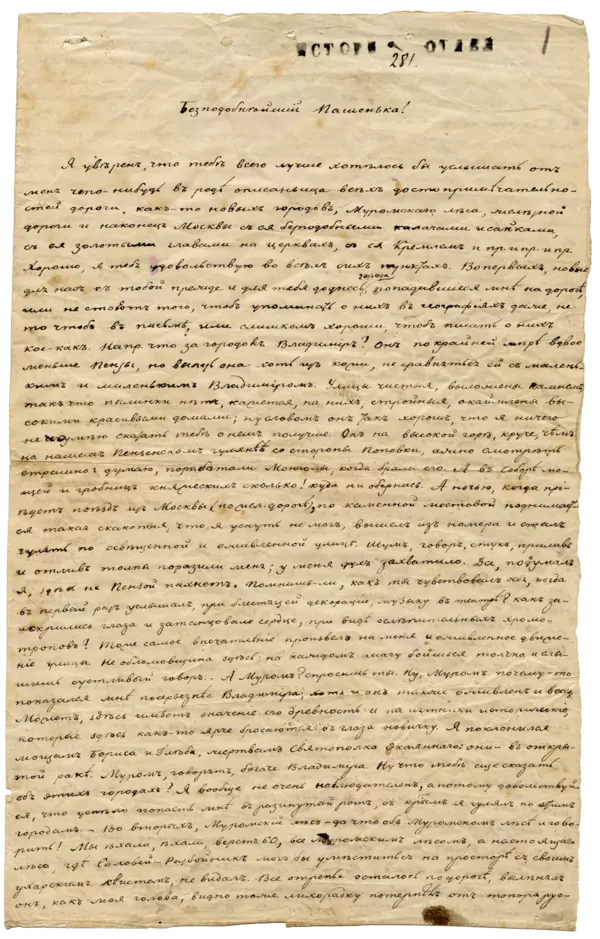 ИСТОРИ ОТДЕЛ
1
281.
Безподобнѣйшій Пашенька!
Я увѣренъ, что тебѣ всего лучше хотѣлось бы услышать отъ
меня чего-нибудь въ родѣ описаньица всѣхъ достопримѣчательно-
стей дороги, какъ-то новыхъ городовъ, Муромскаго лѣса, желѣзной
дороги и наконецъ Москвы съ ея безподобными калачами и сайками,
съ ея золотыми главами на церквахъ, съ ея Кремлемъ и пр. и пр. и пр.
Хорошо, я тебѣ удовольствую во всѣхъ сихъ пунктахъ. Вопервыхъ, новые
для насъ съ тобой прежде и для тебя доднесь города, попадавшіеся мнѣ на дорогѣ,
или не стоютъ того, чтобъ упоминать о нихъ въ географіяхъ даже, не
то чтобъ въ письмѣ, или слишкомъ хороши, чтобъ писать о нихъ
кое-какъ. Напр. что за городокъ Владиміръ? Онъ по крайней мѣрѣ вдвое
меньше Пензы, но вылѣзь она хоть изъ кожи, не сравняться ей съ малень-
кимъ и миленькимъ Владиміромъ. Улицы чистыя, выложены камнемъ,
такъ что пылинки нѣтъ, кажется, на нихъ, стройныя, окаймлены вы-
сокими красивыми домами; словомъ онъ такъ хорошъ, что я ничего
не умѣю сказать тебѣ о немъ получше. Онъ на высокой горѣ, круче, чѣмъ
на нашемъ Пензенскомъ гулянѣ со стороны Поповки, ажно смотрѣть
страшно: думаю, поработали Монголы, когда брали его. А въ Соборѣ мо-
щей и гробницъ княжескихъ сколько! куда ни обернись. А ночью, когда прі-
ѣдетъ поѣздъ изъ Москвы (по жел. дорогѣ), по каменной мостовой поднимает-
ся такая скакотня, что я уснуть не могъ, вышелъ изъ номера и сталъ
гулять по освѣщенной и оживленной улицѣ. Шумъ, говоръ, стукъ, приливъ
и отливъ толпы поразили меня; у меня духъ захватило. Ба, подумалъ
я, здѣсь не Пензой пахнетъ. Помнишь-ли, какъ ты чувствовалъ себя, когда
въ первый разъ услышалъ, при блестящей декораціи, музыку въ театрѣ? какъ за-
искрились глаза и затанцовало сердце, при видѣ ослѣпительныхъ хромо-
троповъ? Тоже самое впечатлѣніе произвело на меня и оживленное движе-
ніе улицъ. Не обломовщина здѣсь: на каждомъ шагу бойкая толпа и слы-
шишь суетливый говоръ. - А Муромъ? спросишь ты. Ну, Муромъ почему-то
показался мнѣ посерьезнѣе Владиміра; хотя и онъ также оживленъ и
Можетъ, здѣсь имѣютъ значеніе его древность и памятники историческіе,
которые здѣсь какъ-то ярче бросаются въ глаза новичку. Я поклонился
мощамъ Бориса и Глѣба, жертвамъ Святополка Окаяннаго: они - въ откры-
той ракѣ. Муромъ, говорятъ, богаче Владиміра. Ну что тебѣ еще сказать
объ этихъ городахъ? Я вообще не очень наблюдателенъ, а потому довольствуй-
ся, что успѣло попасть мнѣ въ разинутый ротъ, съ краимъ я гулялъ по этимъ
городамъ. - Во вторыхъ, Муромскій лѣсъ - да что объ Муромскомъ лѣсѣ и гово-
рить! Мы ѣхали, ѣхали, верстъ 60, все Муромскимъ лѣсомъ, а настоящаго
лѣса, гдѣ Соловей-Разбойникъ могъ бы умѣститься на просторѣ съ своимъ
ухарскимъ свистомъ, не видалъ. Все отрепье осталось по дорогѣ, вылинялъ
онъ, какъ моя голова, видно тоже лихорадку потерпѣвъ отъ топора рус-